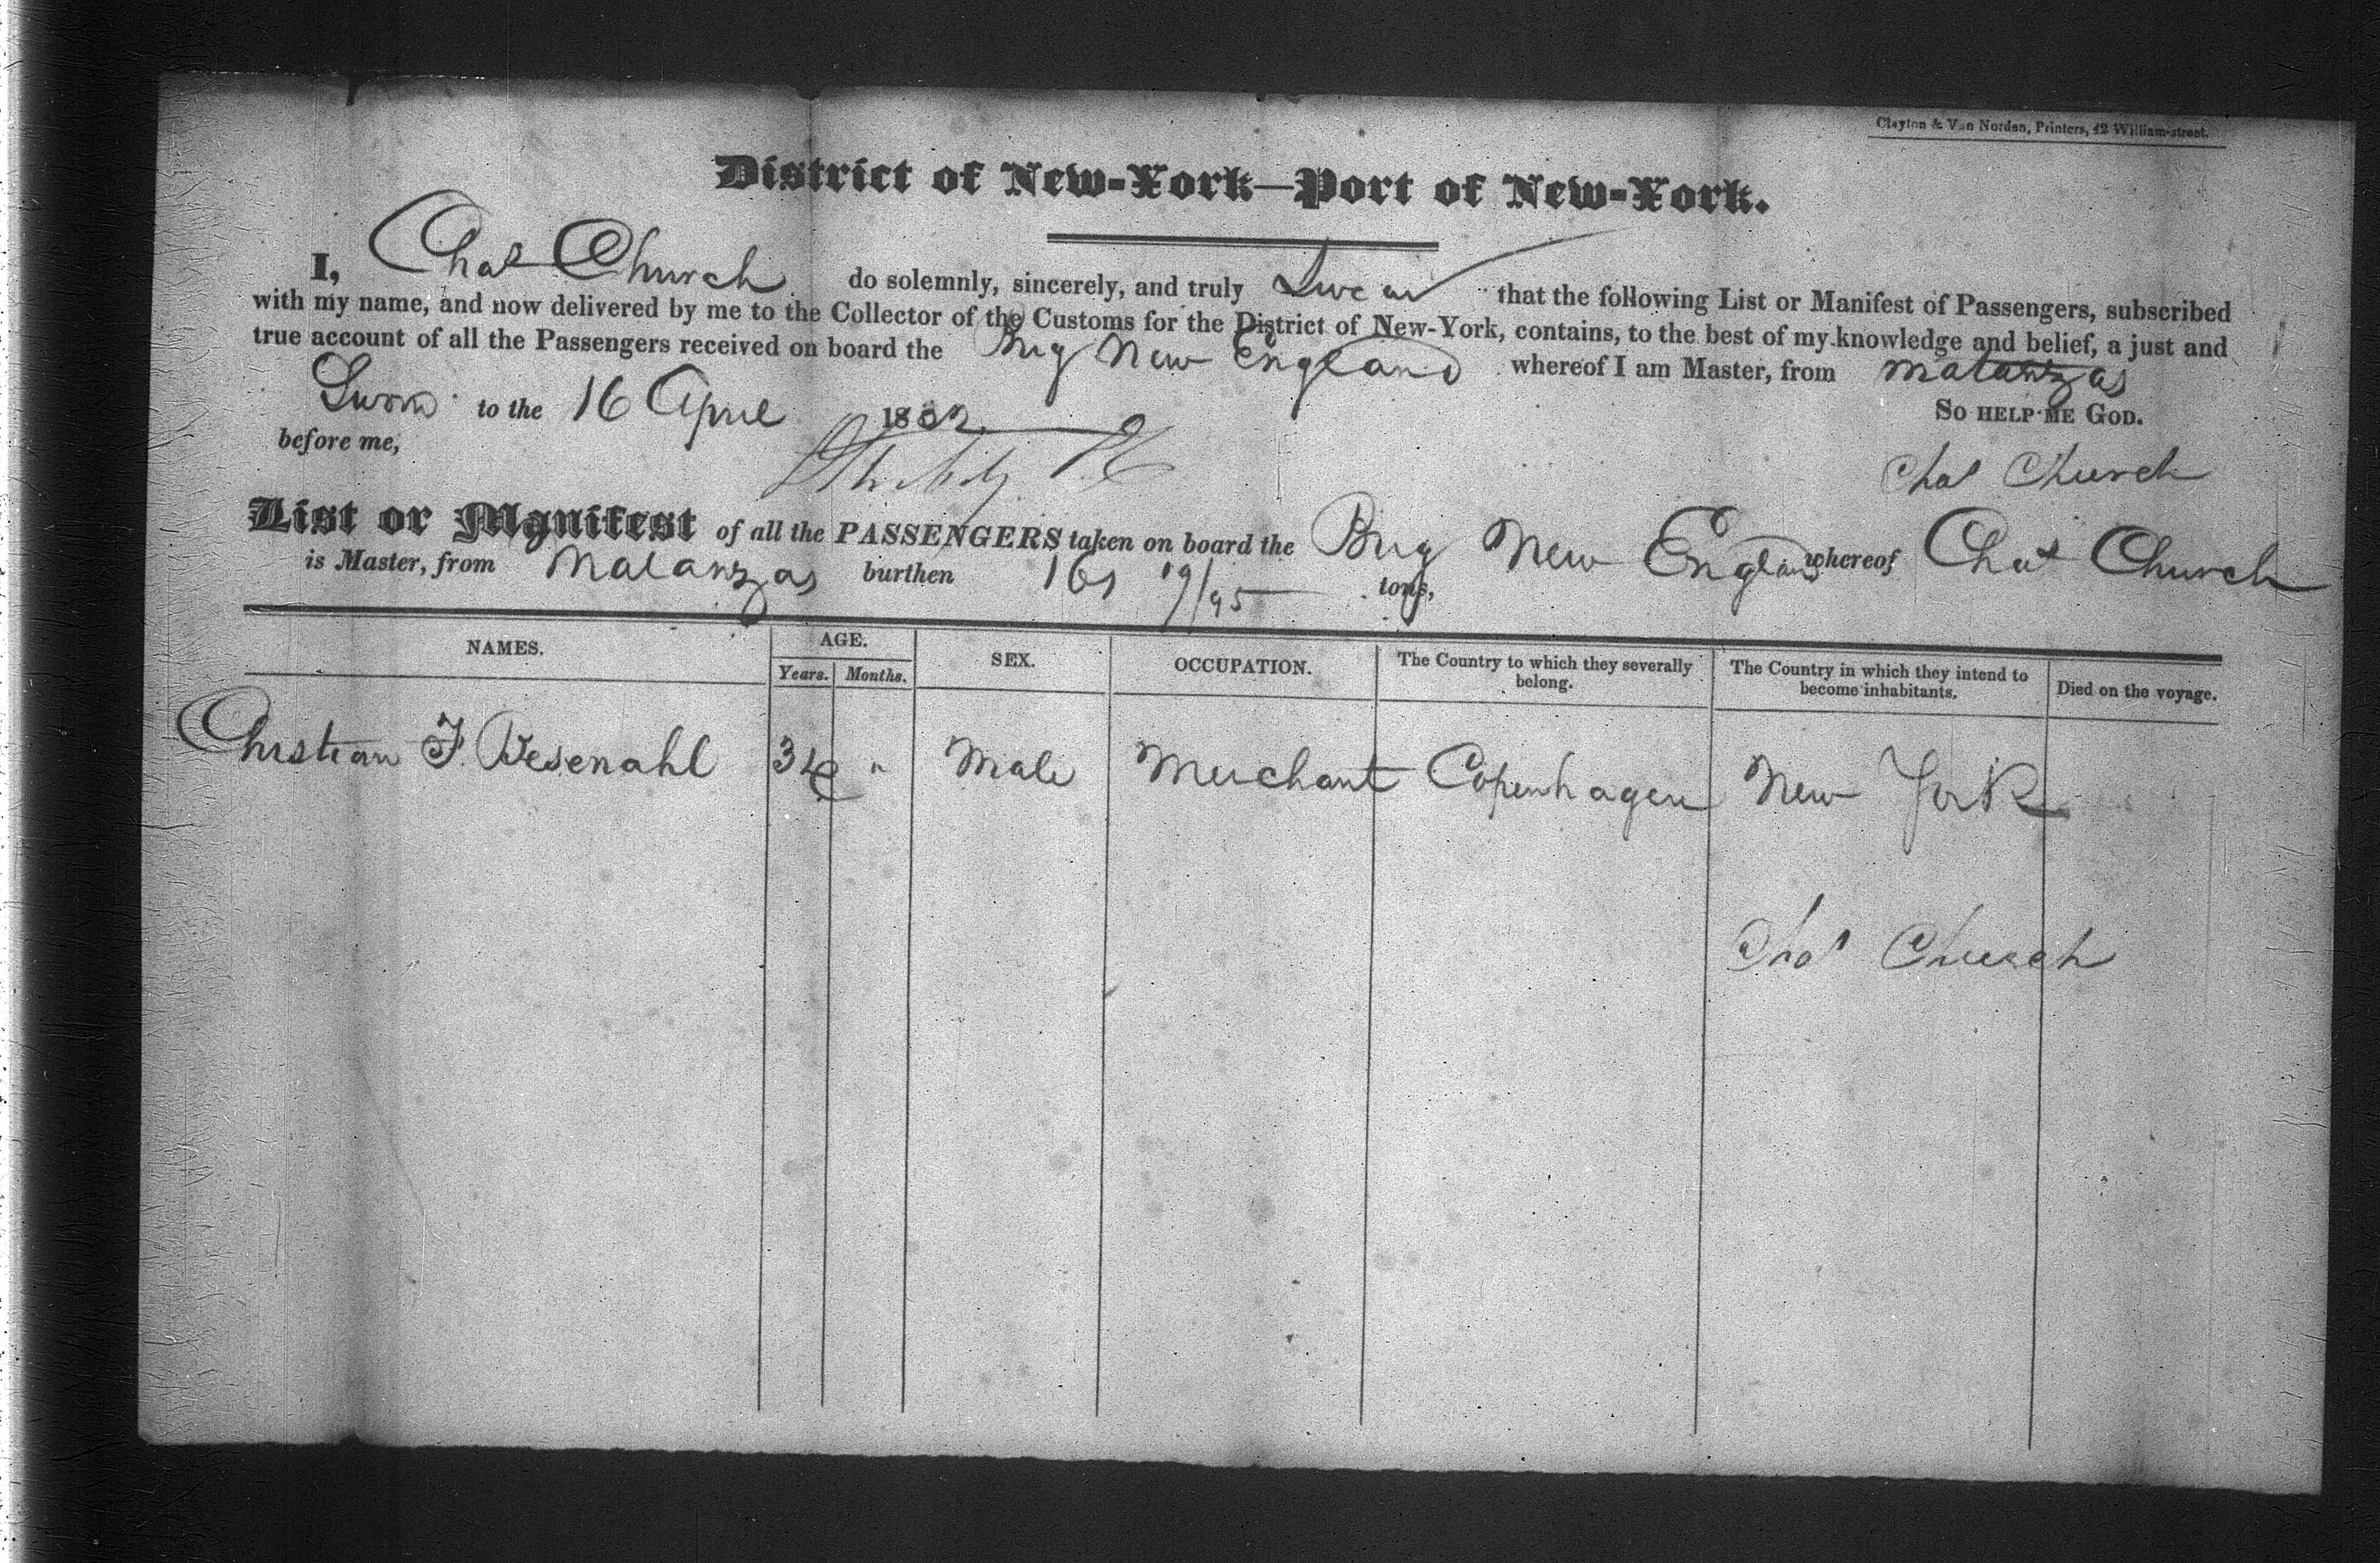 Clayton & Van Norden, Printers, 42 William-street.
District of New-York—Port of New-York.
I, Chas Church do solemnly, sincerely, and truly Swear that the following List or Manifest of Passengers, subscribed
with my name, and now delivered by me to the Collector of the Customs for the District of New-York, contains, to the best of my knowledge and belief, a just and
true account of all the Passengers received on board the Brig New England whereof I am Master, from Matanzas
Sworn to the 16 April 1832 So help me God.
before me,
Chas Church
List or Manifest of all the PASSENGERS taken on board the Brig New England whereof Chas Church
is Master, from Matanzas burthen 19/95 tons,
NAMES. AGE. SEX. OCCUPATION. The Country to which they severally belong. The Country in which they intend to become inhabitants. Died on the voyage.
Years. Months.
Christian F. Wesenahl 34 " Male Merchant Copenhagen New York
Chas Church